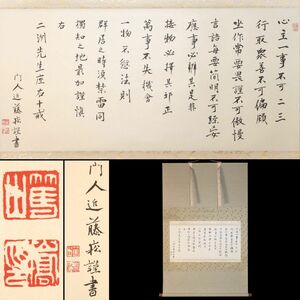 心主一事不可二三
行取衆善不可偏頗
坐作當要畏謹不可傲慢
言語每要簡明不可輕妄
應事必辨其是非
接物必擇其邪正
萬事不失機會
一物不怠法則
群居之時須禁雷同
獨知之地最加謹慎
右
二洲先生座右十戒
門人近藤崧謹書
門人近藤崧謹書